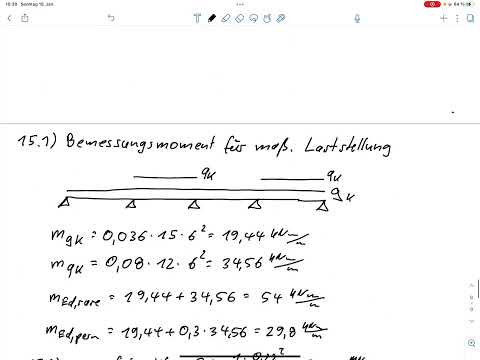 15:39 Sonntag 15. Jan.
84 %
15.1) Bemessungsmoment für maß. Laststellung
qk qk
gk
mgk = 0,036 · 15 · 6² = 19,44 kNm/m
mqk = 0,08 · 12 · 6² = 34,56 kNm/m
mEd,rare = 19,44 + 34,56 = 54 kNm/m
mEd,perm = 19,44 + 0,3 · 34,56 = 29,8 kNm/m